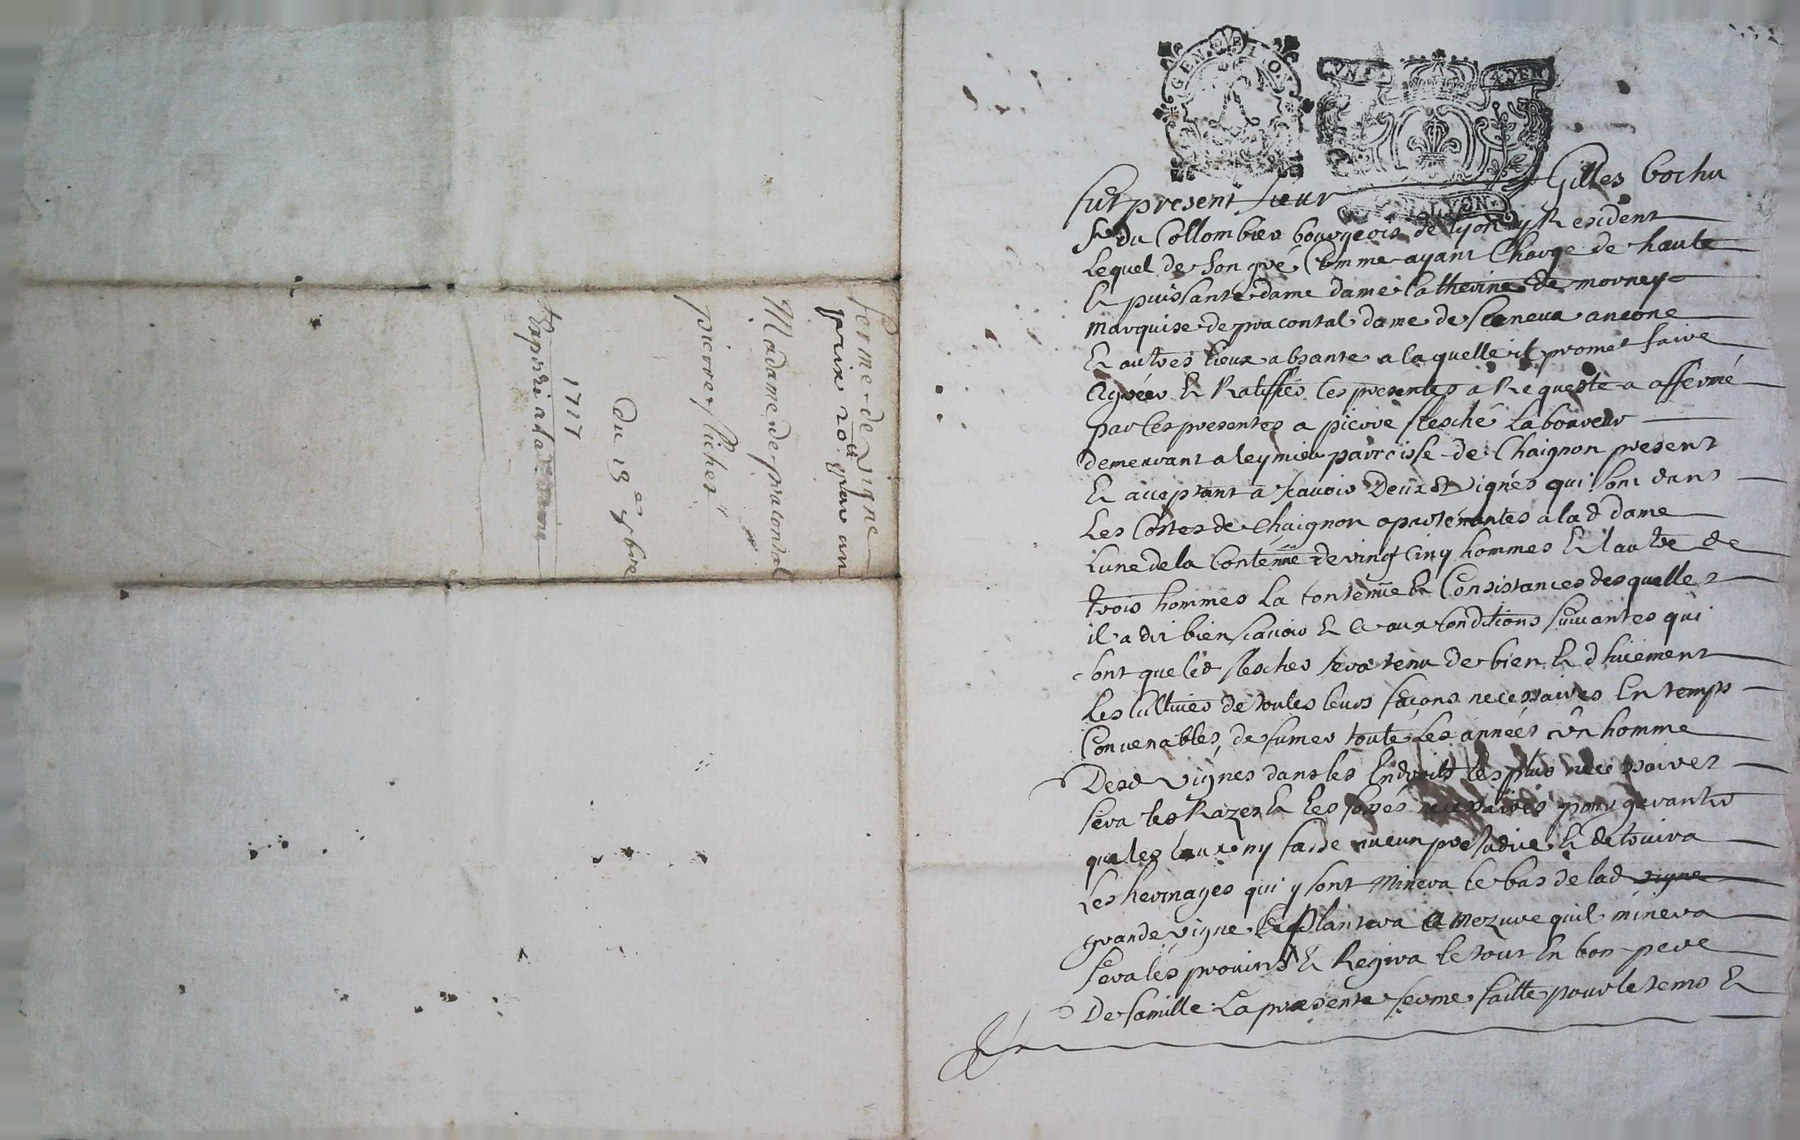 ferme de vigne
prix 20lt par an
Madame de pracontal
pierre fleches
Du 13e 9bre
1717
Expiré a la
GEN. DE LYON
LYON
fut present sieur Gilles bochu
sr du Collombier bourgeois de lyon y Resident
Lequel de son gré Comme ayant Charge de haute
& puissante dame dame Catherine de morney
marquise de pracontal dame de seneux ancone
& autres lieux absante a laquelle il promet faire
agréer & Ratiffier ces presentes a Requeste a affermé
par ces presentes a pierre flesche Laboureur
demeurant a leymieu parroisse de Chaignon present
& acceptant a scavoir Deux Vignes qui sont dans
Les Costes de Chaignon apartenantes a lad dame
Lune de la Contenue de vingt Cinq hommes & lautre de
trois hommes La Contenue & Consistances desquelles
il a dit bien scavoir & ce aux Conditions suivantes qui
sont que led flesches sera tenu de bien & dhuement
Les Cultiver de toutes leurs façons necessaires En temps
Convenables, de fumer toute les années un homme
Desd vignes dans les Endroits les plus necessaires
fera les Razes & les fossés necessaires pour garantir
que les Eaux ny fasse aucun prejudice & detruira
Les hermages qui y sont Minera le bas de lad vigne
grande vigne & Plantera a Mezure quil minera
fera les provins & Regira le tout En bon pere
De famille La presente ferme faitte pour le tems &